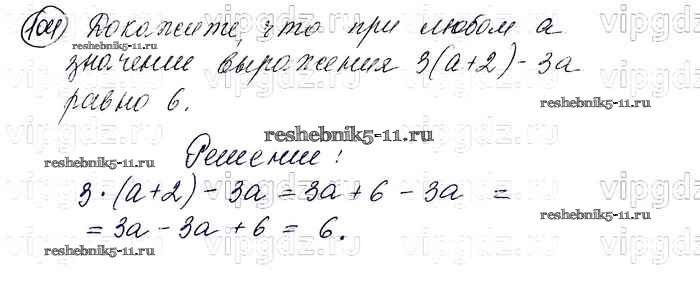 104 Докажите, что при любом a
значение выражения 3(a+2)-3a
равно 6.
Решение:
3·(a+2)-3a = 3a+6-3a =
= 3a-3a+6 = 6.
reshebnik5-11.ru
reshebnik5-11.ru
reshebnik5-11.ru
reshebnik5-11.ru
reshebnik5-11.ru
reshebnik5-11.ru
vipgdz.ru
vipgdz.ru
vipgdz.ru
vipgdz.ru